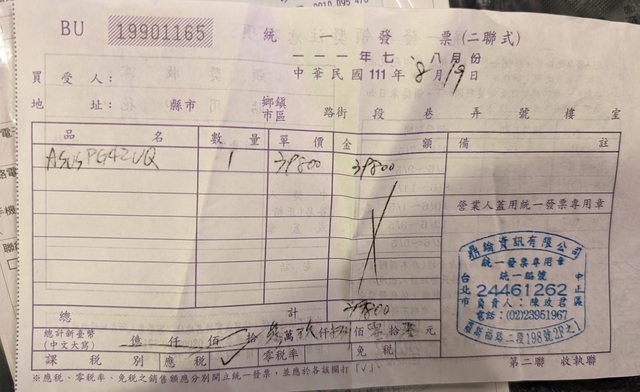 BU 19901165 統一發票(二聯式)
一一一年七、八月份
買受人: 中華民國111年8月19日
地址: 縣市 鄉鎮市區 路街 段 巷 弄 號 樓 室
品名 數量 單價 金額 備註
ASUS PG42UQ 1 39800 39800
營業人蓋用統一發票專用章
鼎鑰資訊有限公司
統一發票專用章
統一編號
24461262
台北市 中正區
負責人:陳政君
電話:(02)23951967
羅斯福路二段198號2F之1
總計 39800
總計新臺幣(中文大寫) 億 仟 佰 拾 參萬 玖仟 捌佰 零拾 零元
課稅別 應稅 ✓ 零稅率 免稅
第二聯 收執聯
※應稅、零稅率、免稅之銷售額應分別開立統一發票,並應於各該欄打「√」。